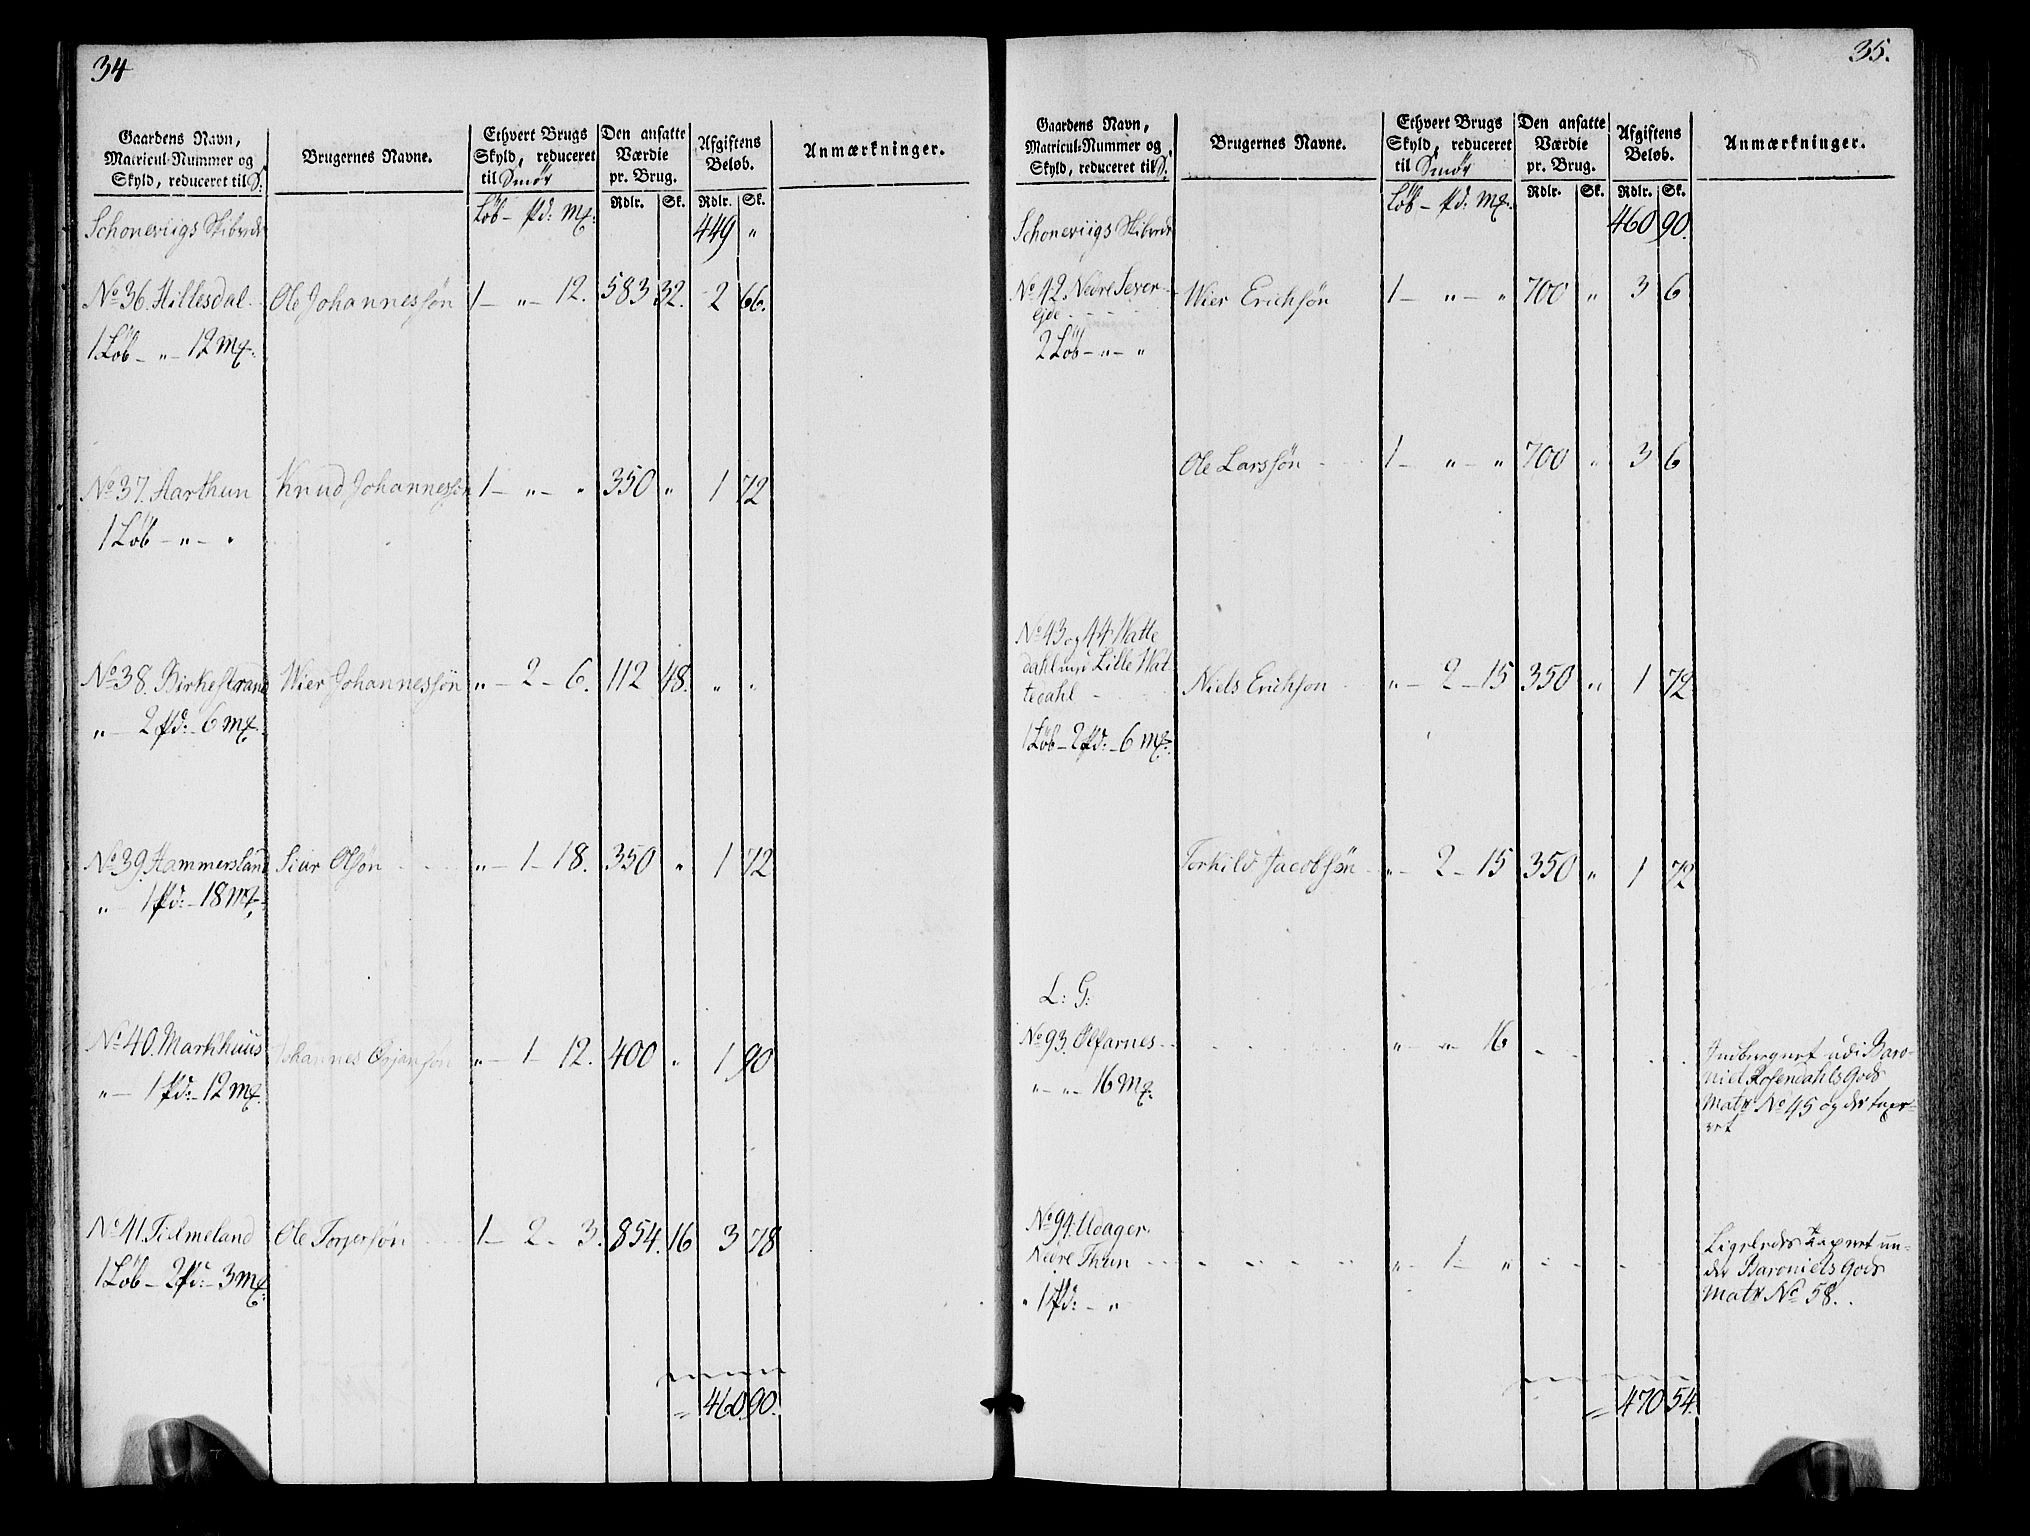 34
Gaardens Navn, Matricul-Nummer og Skyld, reduceret til S: Brugernes Navne. Ethvert Brugs Skyld, reduceret til Smør Den ansatte Værdie pr. Brug. Afgiftens Beløb. Anmærkninger.
Løb – pd: mk: Rdlr. Sk. Rdlr. Sk.
Schoneviigs Skibrede 449 "
No 36. Hillesdal Ole Johannessøn 1 – " – 12. 583 32. 2 66.
1 Løb – " – 12 mk.
No 37. Aarthun Knud Johannessøn 1 – " – " 350 " 1 72
1 Løb – " – "
No 38. Birkestrand Wier Johannessøn " – 2 – 6. 112 48. " "
" – 2 pd: – 6 mk.
No 39. Hammersland Siur Olsøn " – 1 – 18. 350 " 1 72
" – 1 pd: – 18 mk.
No 40. Markhuus Johannes Ørjansøn " – 1 – 12. 400 " 1 90
" – 1 pd: – 12 mk.
No 41. Tidmeland Ole Torgersøn 1 – 2 – 3. 854. 16 3 78
1 Løb – 2 pd: – 3 mk.
= 460. 90.
35.
Gaardens Navn, Matricul-Nummer og Skyld, reduceret til S: Brugernes Navne. Ethvert Brugs Skyld, reduceret til Smør Den ansatte Værdie pr. Brug. Afgiftens Beløb. Anmærkninger.
Løb – pd: mk. Rdlr. Sk. Rdlr. Sk.
Schoneviigs Skibrede 460 90.
No 42. Nedre Sever-
Ejde Wier Erichsøn 1 – " – " 700 " 3 6
2 Løb – " – "
Ole Larssøn 1 – " – " 700 " 3 6
No 43 og 44 Watte
dahl Lille Wat
tedahl Niels Erichson " – 2 – 15 350 " 1 72
1 Løb – 2 pd: – 6 mk.
Torkild Jacobsøn " – 2 – 15 350 " 1 72
L: G:
No 93. Ølfarnes " " 16
" – " – 16 mk.
Indberegnet udi Baro-
niet Rosendahls Gods
Matr No 45 og der taxe-
ret
No 94. Udager
Nedre Thun " – 1 – "
" 1 pd: – "
Ligeledes Taxeret un-
der Baroniets Gods
Matr No 58.
= 470 54.